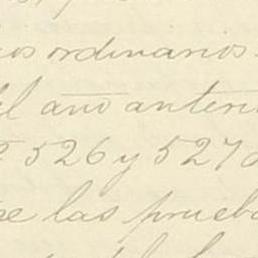 os ordinarios
el año anteri
526 y 527 d
se las prueba